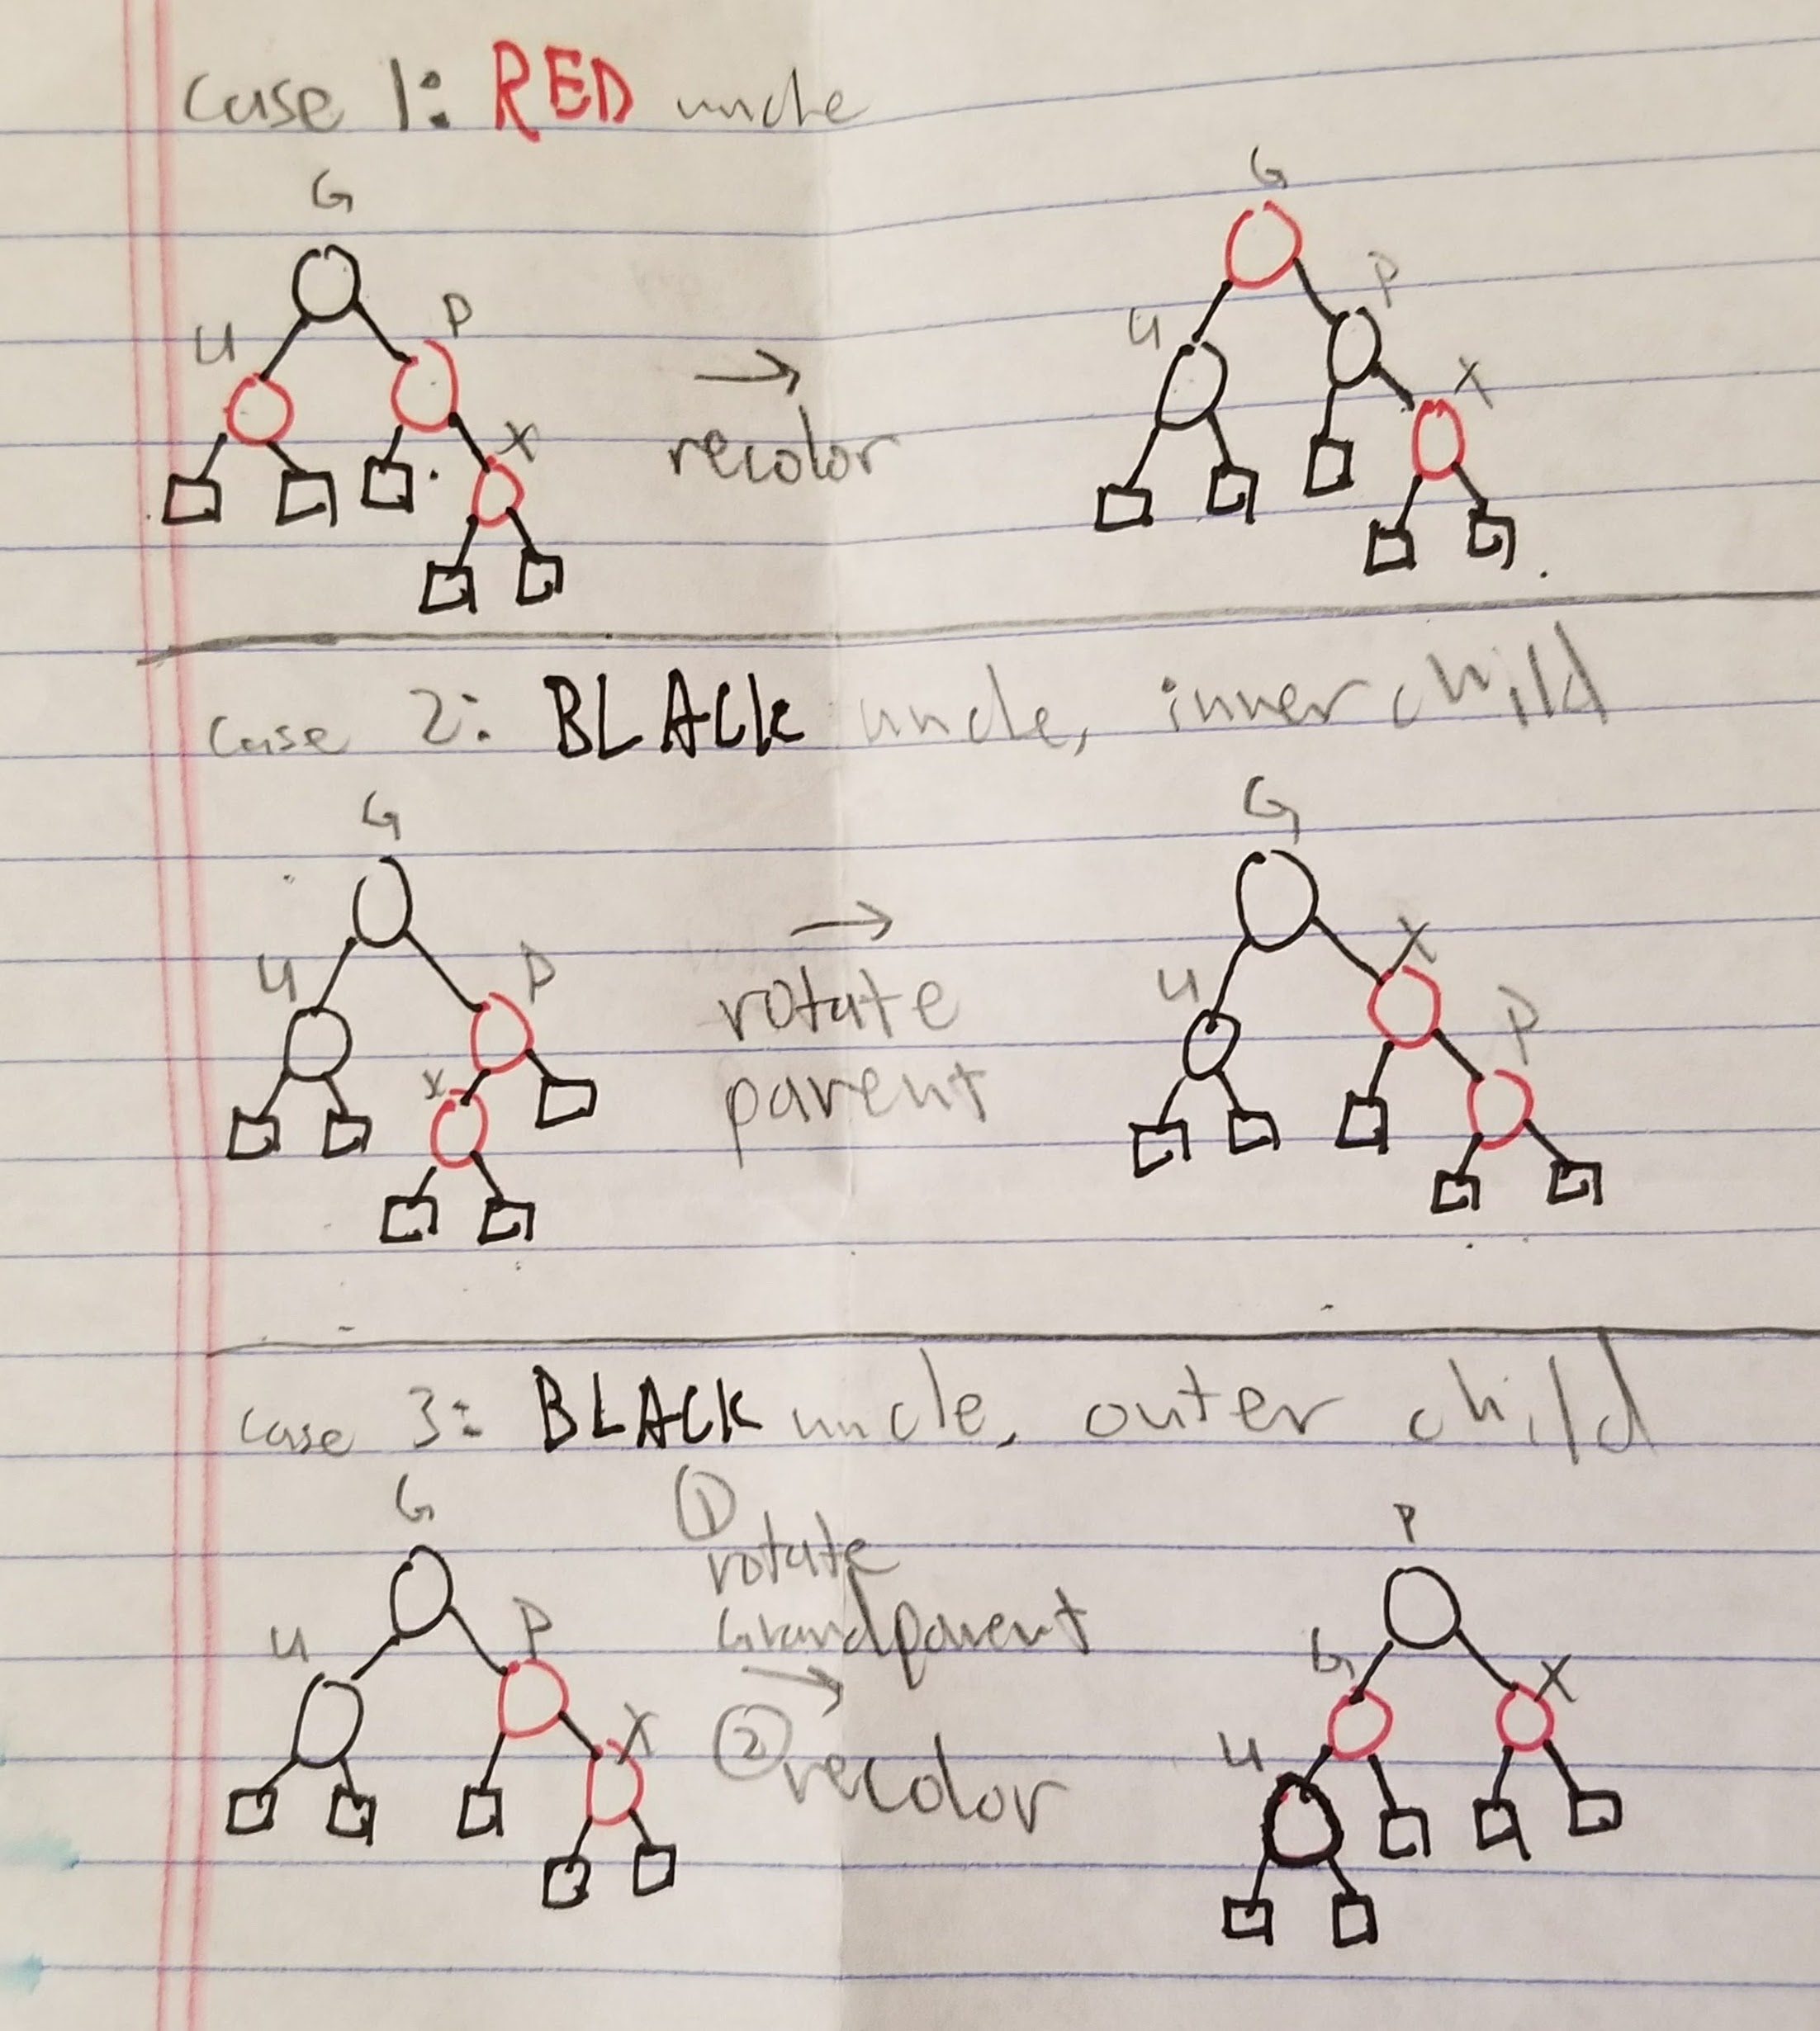 case 1: RED uncle
G
G
U
P
U
P
X
X
→
recolor
case 2: BLACK uncle, inner child
G
G
U
P
U
X
X
P
→
rotate
parent
case 3: BLACK uncle, outer child
G
U
P
X
①
rotate
Grandparent
→
② recolor
P
G
X
U